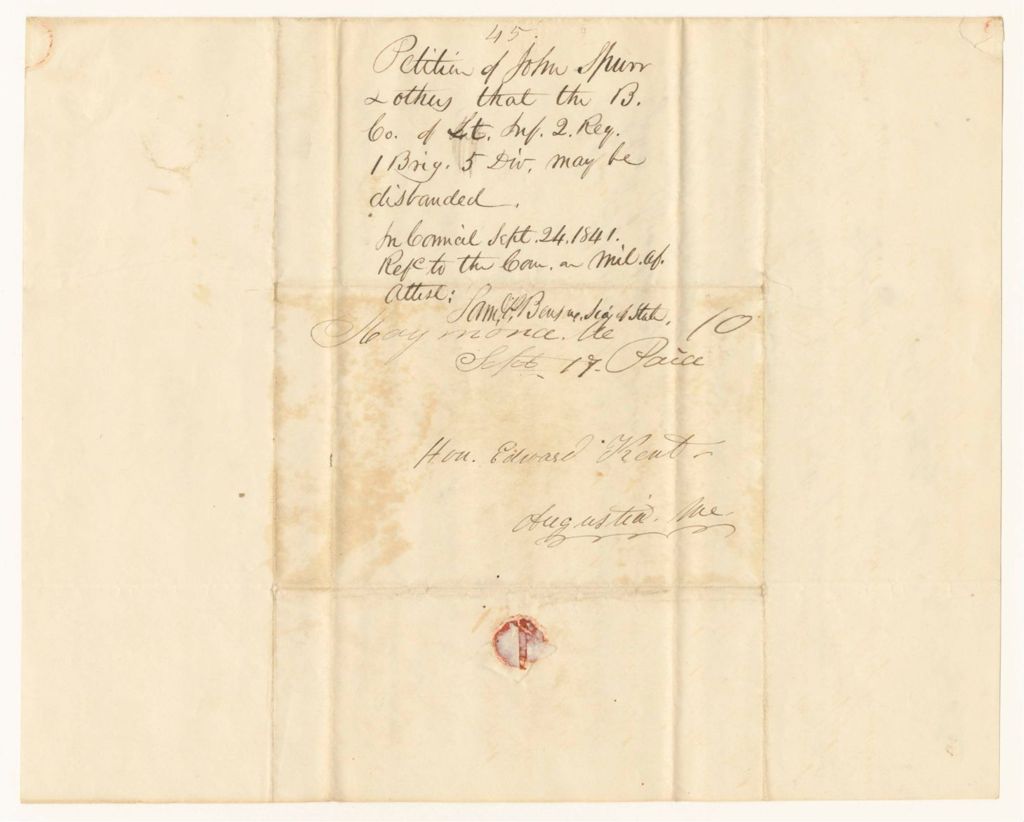 45
Petition of John Spurr
& others that the B.
Co. of Lt. Inf. 2. Reg.
1 Brig. 5 Div. may be
disbanded.
In Council Sept. 24. 1841.
Ref.d to the Com. on Mil. af.
Attest:
Sam.l P. Benson, Sec.y of State.
Raymond. Me 10
Sept 17. Paid
Hon. Edward Kent
Augusta. Me